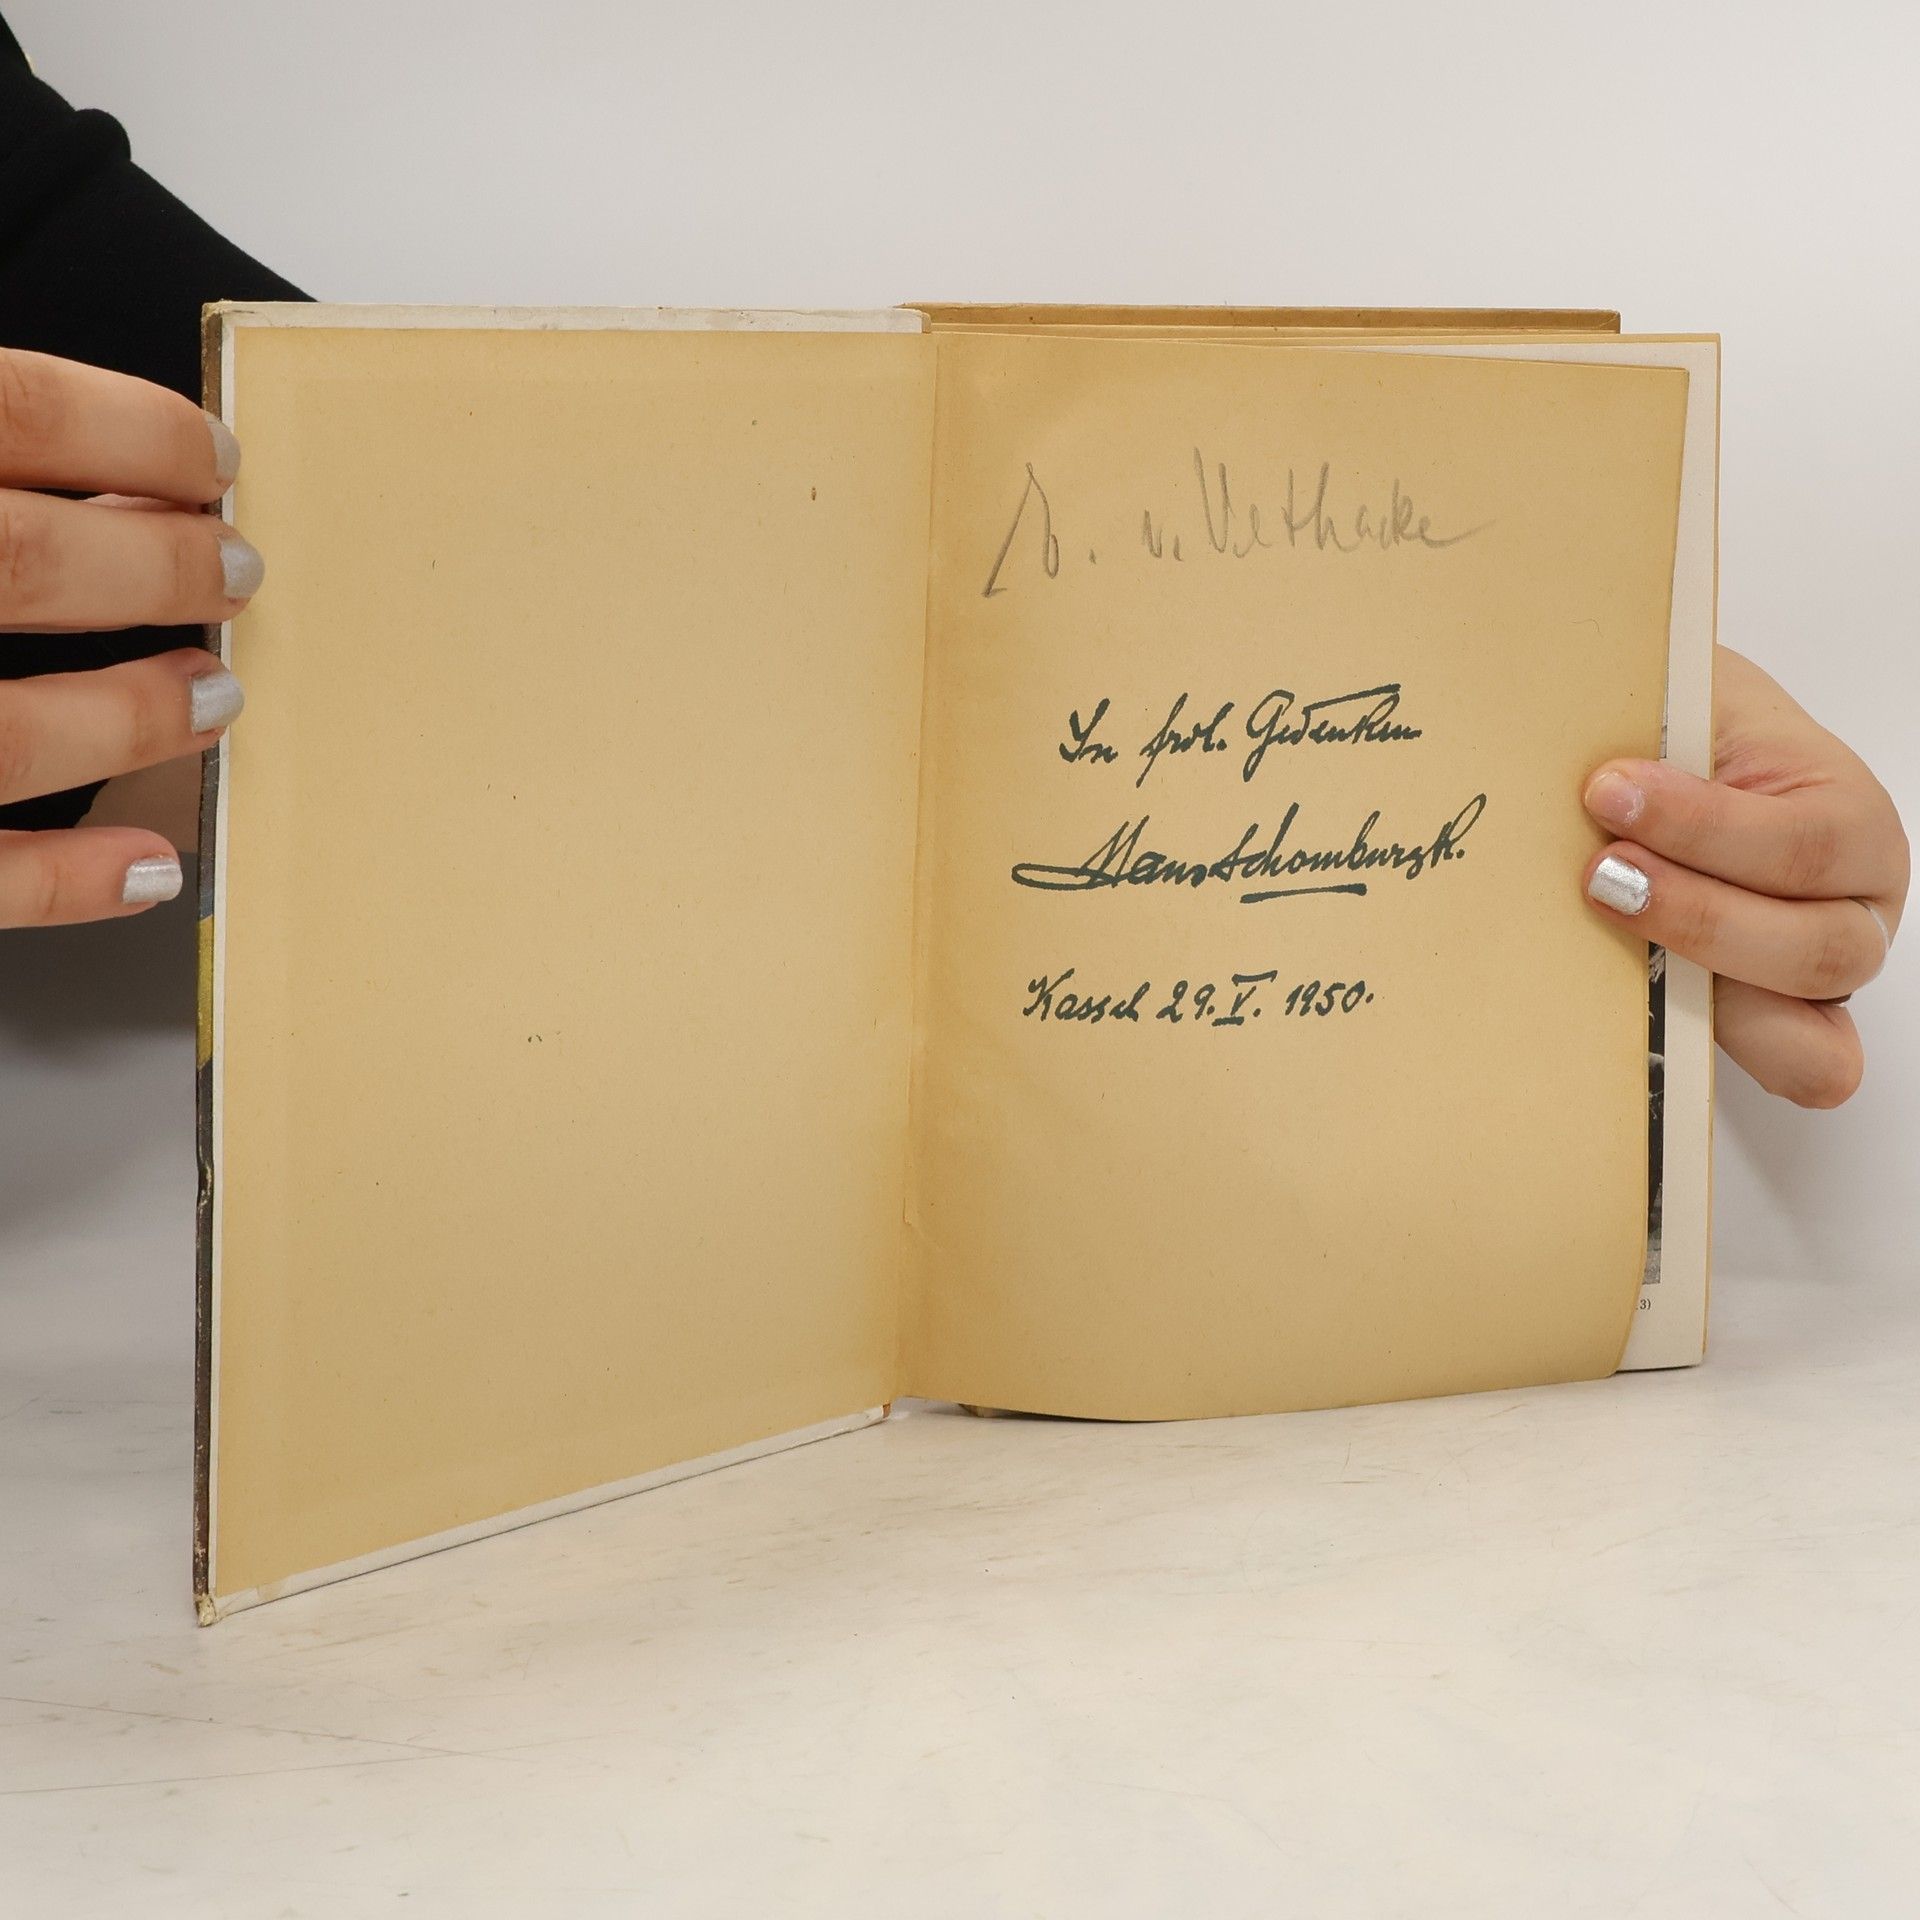 v. Vethacke
In frdl. Gedenken
Hans Schomburgk.
Kassel 29. V. 1950.
3)